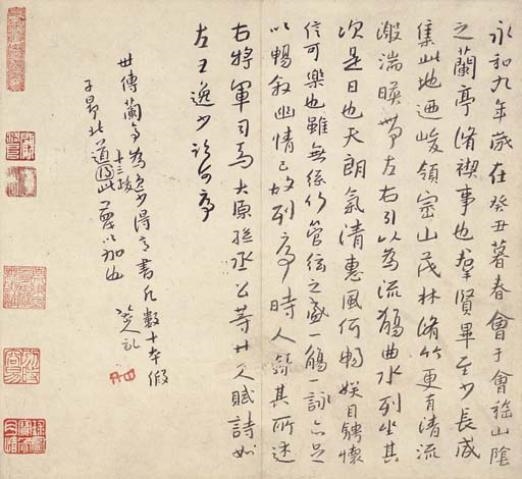 永和九年歲在癸丑暮春會于會稽山陰
之蘭亭脩禊事也羣賢畢至少長咸
集此地迺峻領崇山茂林脩竹更有清流
激湍暎帶左右引以為流觴曲水列坐其
次是日也天朗氣清惠風和暢娛目騁懷
信可樂也雖無絲竹管弦之盛一觴一詠亦足
以暢敘幽情已故列序時人錄其所述
右將軍司馬太原孫丞公等廿六人賦詩如
左王逸少詩序
世傳蘭亭為逸少得意書凡數十本假
子昂十三跋
八大山人